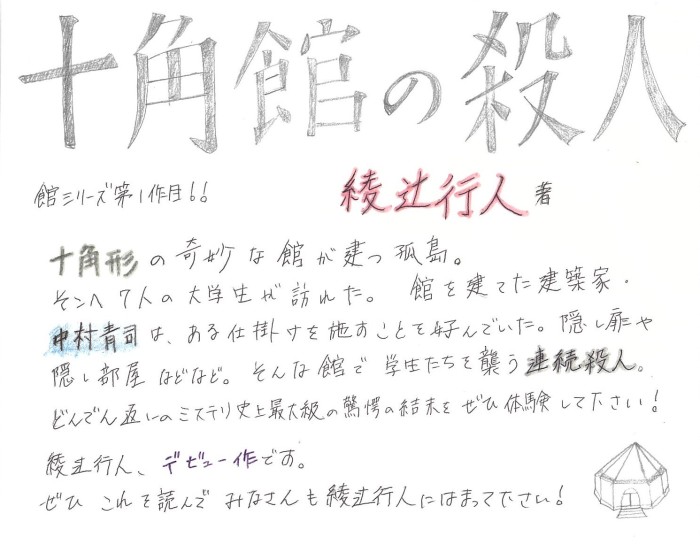 十角館の殺人
館シリーズ第1作目!!
綾辻行人 著
十角形の奇妙な館が建つ孤島。
そこへ7人の大学生が訪れた。 館を建てた建築家・
中村青司は、ある仕掛けを施すことを好んでいた。隠し扉や
隠し部屋などなど。そんな館で学生たちを襲う連続殺人。
どんでん返しのミステリ史上最大級の驚愕の結末をぜひ体験して下さい!
綾辻行人、デビュー作です。
ぜひこれを読んでみなさんも綾辻行人にはまって下さい!